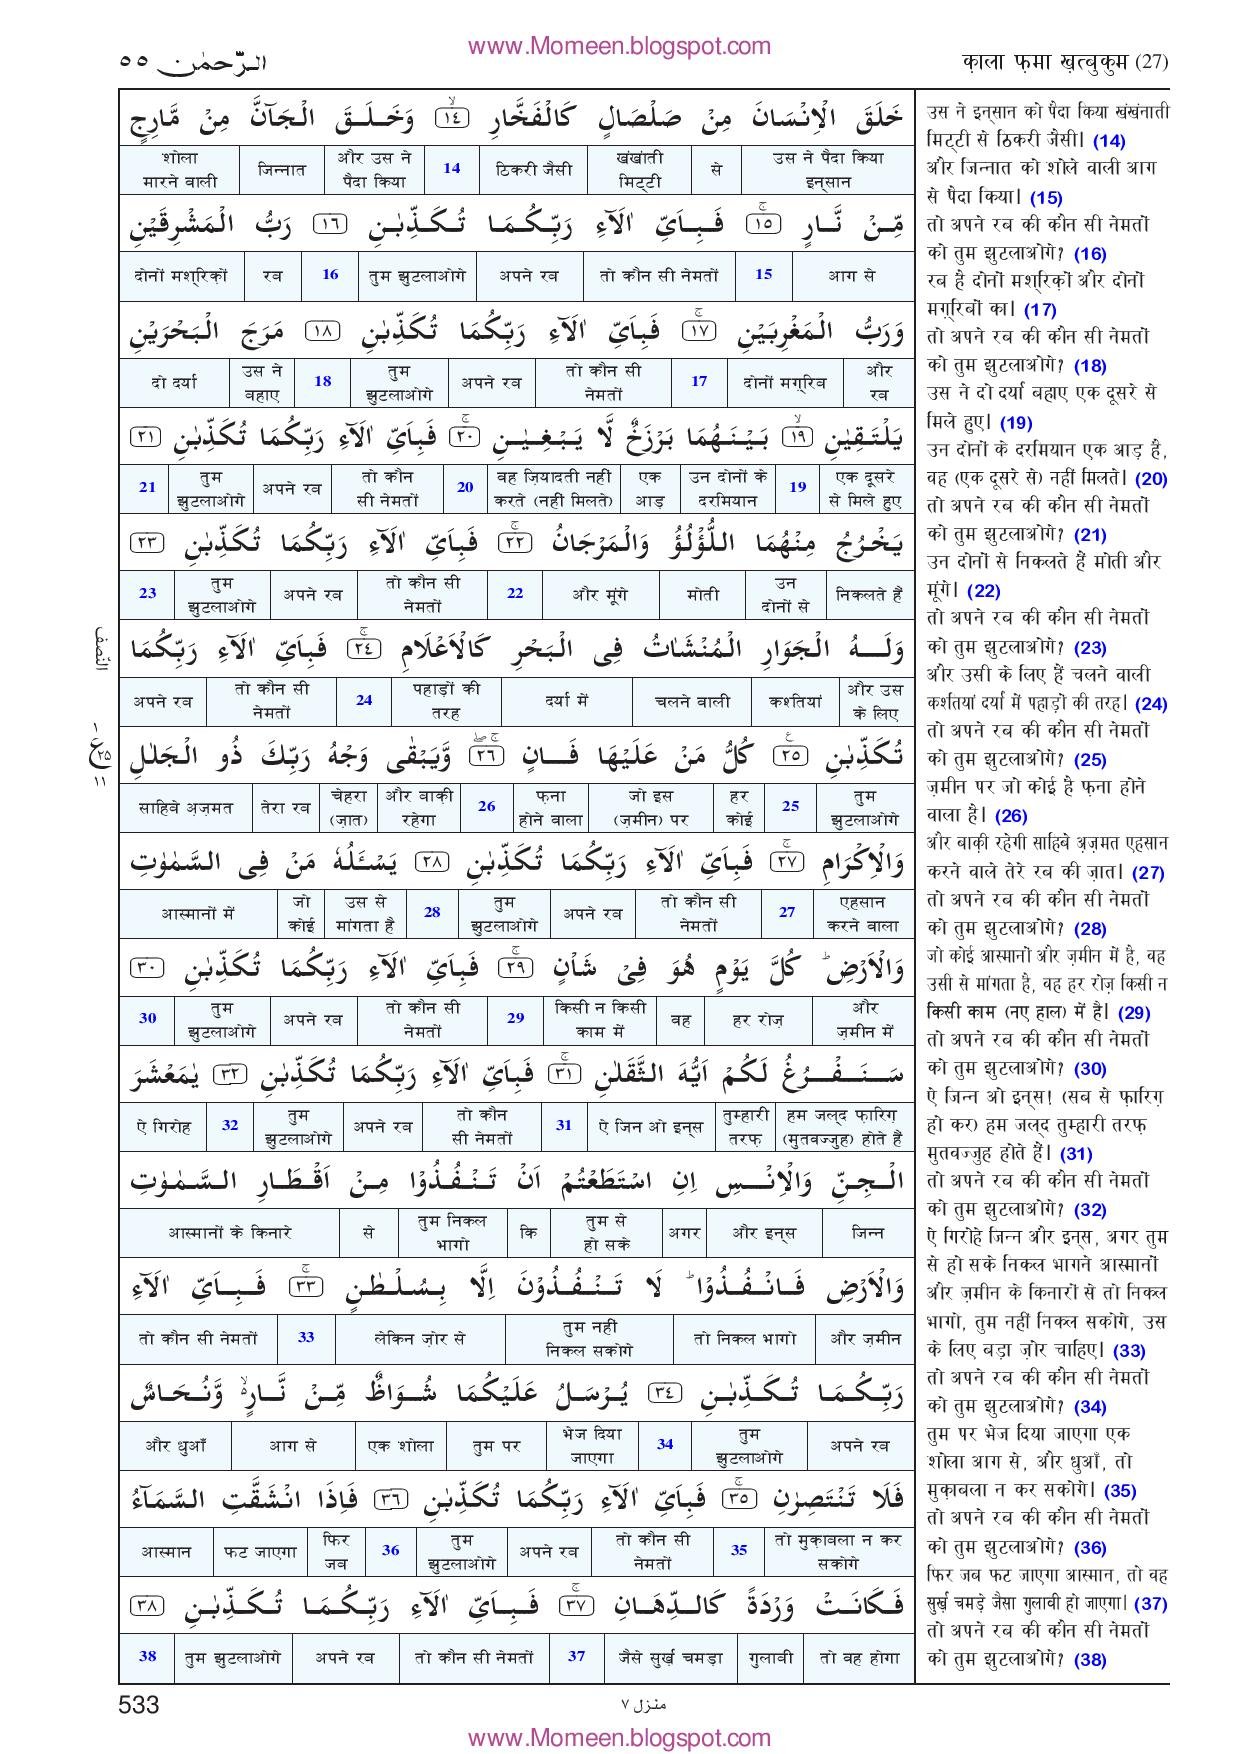 www.Momeen.blogspot.com
الرّحمٰن ٥٥
क़ाला फ़मा ख़त्बुकुम (27)
خَلَقَ الْاِنْسَانَ مِنْ صَلْصَالٍ كَالْفَخَّارِ ۙ١٤ وَخَلَقَ الْجَآنَّ مِنْ مَّارِجٍ
उस ने पैदा किया इन्सान से खंखांती मिट्टी ठिकरी जैसी 14 और उस ने पैदा किया जिन्नात शोला मारने वाली
مِّنْ نَّارٍ ۚ١٥ فَبِاَيِّ اٰلَآءِ رَبِّكُمَا تُكَذِّبٰنِ ١٦ رَبُّ الْمَشْرِقَيْنِ
आग से 15 तो कौन सी नेमतों अपने रब तुम झुटलाओगे 16 रब दोनों मश्रिक़ों
وَرَبُّ الْمَغْرِبَيْنِ ۚ١٧ فَبِاَيِّ اٰلَآءِ رَبِّكُمَا تُكَذِّبٰنِ ١٨ مَرَجَ الْبَحْرَيْنِ
और रब दोनों मग़्रिब 17 तो कौन सी नेमतों अपने रब तुम झुटलाओगे 18 उस ने बहाए दो दर्या
يَلْتَقِيٰنِ ۙ١٩ بَيْنَهُمَا بَرْزَخٌ لَّا يَبْغِيٰنِ ۚ٢٠ فَبِاَيِّ اٰلَآءِ رَبِّكُمَا تُكَذِّبٰنِ ٢١
एक दूसरे से मिले हुए 19 उन दोनों के दरमियान एक आड़ वह ज़ियादती नहीं करते (नहीं मिलते) 20 तो कौन सी नेमतों अपने रब तुम झुटलाओगे 21
يَخْرُجُ مِنْهُمَا اللُّؤْلُؤُ وَالْمَرْجَانُ ۚ٢٢ فَبِاَيِّ اٰلَآءِ رَبِّكُمَا تُكَذِّبٰنِ ٢٣
निकलते हैं उन दोनों से मोती और मूंगे 22 तो कौन सी नेमतों अपने रब तुम झुटलाओगे 23
وَلَهُ الْجَوَارِ الْمُنْشَاٰتُ فِي الْبَحْرِ كَالْاَعْلَامِ ۚ٢٤ فَبِاَيِّ اٰلَآءِ رَبِّكُمَا
और उस के लिए कश्तियां चलने वाली दर्या में पहाड़ों की तरह 24 तो कौन सी नेमतों अपने रब
تُكَذِّبٰنِ ٢٥ كُلُّ مَنْ عَلَيْهَا فَانٍ ٢٦ وَّيَبْقٰى وَجْهُ رَبِّكَ ذُو الْجَلٰلِ
तुम झुटलाओगे 25 हर कोई जो इस (ज़मीन) पर फ़ना होने वाला 26 और बाक़ी रहेगा चेहरा (ज़ात) तेरा रब साहिबे अज़मत
وَالْاِكْرَامِ ۚ٢٧ فَبِاَيِّ اٰلَآءِ رَبِّكُمَا تُكَذِّبٰنِ ٢٨ يَسْـَٔلُهٗ مَنْ فِي السَّمٰوٰتِ
एहसान करने वाला 27 तो कौन सी नेमतों अपने रब तुम झुटलाओगे 28 उस से मांगता है जो कोई आस्मानों में
وَالْاَرْضِ ؕ كُلَّ يَوْمٍ هُوَ فِيْ شَاْنٍ ۚ٢٩ فَبِاَيِّ اٰلَآءِ رَبِّكُمَا تُكَذِّبٰنِ ٣٠
और ज़मीन में हर रोज़ वह किसी न किसी काम में 29 तो कौन सी नेमतों अपने रब तुम झुटलाओगे 30
سَنَفْرُغُ لَكُمْ اَيُّهَ الثَّقَلٰنِ ۚ٣١ فَبِاَيِّ اٰلَآءِ رَبِّكُمَا تُكَذِّبٰنِ ٣٢ يٰمَعْشَرَ
हम जल्द फ़ारिग़ (मुतवज्जुह) होते हैं तुम्हारी तरफ़ ऐ जिन ओ इन्स 31 तो कौन सी नेमतों अपने रब तुम झुटलाओगे 32 ऐ गिरोह
الْجِنِّ وَالْاِنْسِ اِنِ اسْتَطَعْتُمْ اَنْ تَنْفُذُوْا مِنْ اَقْطَارِ السَّمٰوٰتِ
जिन्न और इन्स अगर तुम से हो सके कि तुम निकल भागो से आस्मानों के किनारे
وَالْاَرْضِ فَانْفُذُوْا ؕ لَا تَنْفُذُوْنَ اِلَّا بِسُلْطٰنٍ ۚ٣٣ فَبِاَيِّ اٰلَآءِ
और ज़मीन तो निकल भागो तुम नहीं निकल सकोगे लेकिन ज़ोर से 33 तो कौन सी नेमतों
رَبِّكُمَا تُكَذِّبٰنِ ٣٤ يُرْسَلُ عَلَيْكُمَا شُوَاظٌ مِّنْ نَّارٍ ۙ وَّنُحَاسٌ
अपने रब तुम झुटलाओगे 34 भेज दिया जाएगा तुम पर एक शोला आग से और धुआँ
فَلَا تَنْتَصِرٰنِ ۚ٣٥ فَبِاَيِّ اٰلَآءِ رَبِّكُمَا تُكَذِّبٰنِ ٣٦ فَاِذَا انْشَقَّتِ السَّمَآءُ
तो मुक़ाबला न कर सकोगे 35 तो कौन सी नेमतों अपने रब तुम झुटलाओगे 36 फिर जब फट जाएगा आस्मान
فَكَانَتْ وَرْدَةً كَالدِّهَانِ ۚ٣٧ فَبِاَيِّ اٰلَآءِ رَبِّكُمَا تُكَذِّبٰنِ ٣٨
तो वह होगा गुलाबी जैसे सुर्ख़ चमड़ा 37 तो कौन सी नेमतों अपने रब तुम झुटलाओगे 38
उस ने इन्सान को पैदा किया खंखंनाती
मिट्टी से ठिकरी जैसी। (14)
और जिन्नात को शोले वाली आग
से पैदा किया। (15)
तो अपने रब की कौन सी नेमतों
को तुम झुटलाओगे? (16)
रब है दोनों मश्रिक़ों और दोनों
मग़्रिबों का। (17)
तो अपने रब की कौन सी नेमतों
को तुम झुटलाओगे? (18)
उस ने दो दर्या बहाए एक दूसरे से
मिले हुए। (19)
उन दोनों के दरमियान एक आड़ है,
वह (एक दूसरे से) नहीं मिलते। (20)
तो अपने रब की कौन सी नेमतों
को तुम झुटलाओगे? (21)
उन दोनों से निकलते हैं मोती और
मूंगे। (22)
तो अपने रब की कौन सी नेमतों
को तुम झुटलाओगे? (23)
और उसी के लिए हैं चलने वाली
कश्तियां दर्या में पहाड़ों की तरह। (24)
तो अपने रब की कौन सी नेमतों
को तुम झुटलाओगे? (25)
ज़मीन पर जो कोई है फ़ना होने
वाला है। (26)
और बाक़ी रहेगी साहिबे अज़मत एहसान
करने वाले तेरे रब की ज़ात। (27)
तो अपने रब की कौन सी नेमतों
को तुम झुटलाओगे? (28)
जो कोई आस्मानों और ज़मीन में है, वह
उसी से मांगता है, वह हर रोज़ किसी न
किसी काम (नए हाल) में है। (29)
तो अपने रब की कौन सी नेमतों
को तुम झुटलाओगे? (30)
ऐ जिन्न ओ इन्स! (सब से फ़ारिग़
हो कर) हम जल्द तुम्हारी तरफ़
मुतवज्जुह होते हैं। (31)
तो अपने रब की कौन सी नेमतों
को तुम झुटलाओगे? (32)
ऐ गिरोहे जिन्न और इन्स, अगर तुम
से हो सके निकल भागने आस्मानों
और ज़मीन के किनारों से तो निकल
भागो, तुम नहीं निकल सकोगे, उस
के लिए बड़ा ज़ोर चाहिए। (33)
तो अपने रब की कौन सी नेमतों
को तुम झुटलाओगे? (34)
तुम पर भेज दिया जाएगा एक
शोला आग से, और धुआँ, तो
मुक़ाबला न कर सकोगे। (35)
तो अपने रब की कौन सी नेमतों
को तुम झुटलाओगे? (36)
फिर जब फट जाएगा आस्मान, तो वह
सुर्ख़ चमड़े जैसा गुलाबी हो जाएगा। (37)
तो अपने रब की कौन सी नेमतों
को तुम झुटलाओगे? (38)
النّصف
١
ع ٢٥
١١
533
منزل ٧
www.Momeen.blogspot.com